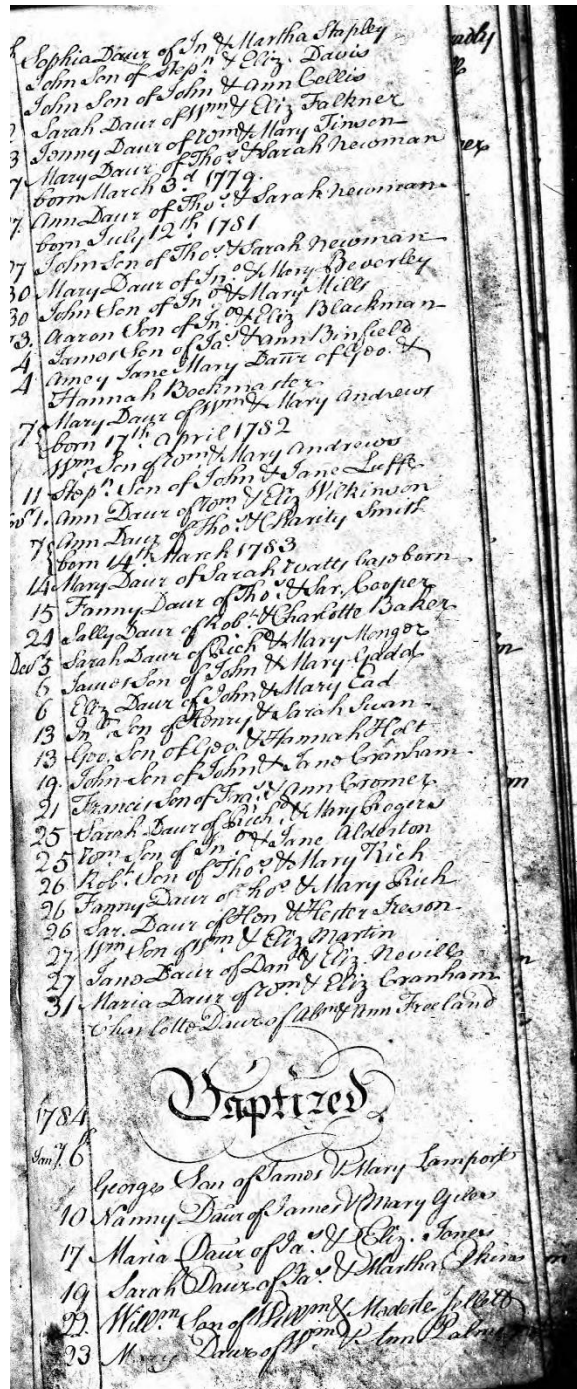 Sophia Daur of Jn.o & Martha Stapley
John Son of Steph.n & Eliz. Davis
John Son of John & Ann Collis
Sarah Daur of Wm & Eliz Falkner
3 Jenny Daur of Wm & Mary Tinson
7 Mary Daur of Tho.s & Sarah Newman
born March 3.d 1779.
7. Ann Daur of Tho.s & Sarah Newman
born July 12th 1781
27 John Son of Tho.s & Sarah Newman
30 Mary Daur of Jn.o & Mary Beverley
30 John Son of Jn.o & Mary Mills
3. Aaron Son of Jn.o & Eliz Blackman
4 James Son of Ja.s & Ann Binfield
4 Amey Jane Mary Daur of Geo. &
Hannah Bockmaster
7 Mary Daur of Wm & Mary Andrews
born 17th April 1782
Wm Son of Wm & Mary Andrews
11 Steph.n Son of John & Jane Luff
1. Ann Daur of Wm & Eliz Wilkinson
7 Ann Daur of Tho.s & Charity Smith
born 14th March 1783
14 Mary Daur of Sarah Watts baseborn
15 Fanny Daur of Tho.s & Sar. Cooper
21 Sally Daur of Rob.t & Charlotte Baker
Dec.r 5 Sarah Daur of Rich.d & Mary Monger
5 James Son of John & Mary Gadd
6 Eliz Daur of John & Mary Ead
13 Jn.o Son of Henry & Sarah Swan
13 Geo. Son of Geo. & Hannah Holt
19. John Son of John & Jane Cranham
21 Francis Son of Fra.s & Ann Cromer
25 Sarah Daur of Rich.d & Mary Rogers
25 Wm Son of Jn.o & Jane Alderton
26 Rob.t Son of Tho.s & Mary Rich
26 Fanny Daur of Tho.s & Mary Rich
26 Sar. Daur of Hen & Hester Ireson
27 Wm Son of Wm & Eliz Martin
27 Jane Daur of Dan.l & Eliz Nevill
31 Maria Daur of Wm & Eliz Cranham
Charlotte Daur of Abm & Ann Freeland
Baptized
1784
Jan.y 6th
George Son of James & Mary Lamport
10 Nanny Daur of James & Mary Giles
17 Maria Daur of Ja.s & Eliz. Jones
19 Sarah Daur of Ja.s & Martha
22. Will.m Son of Will.m & Modeste Jellett
23 Mary Daur of Wm & Ann